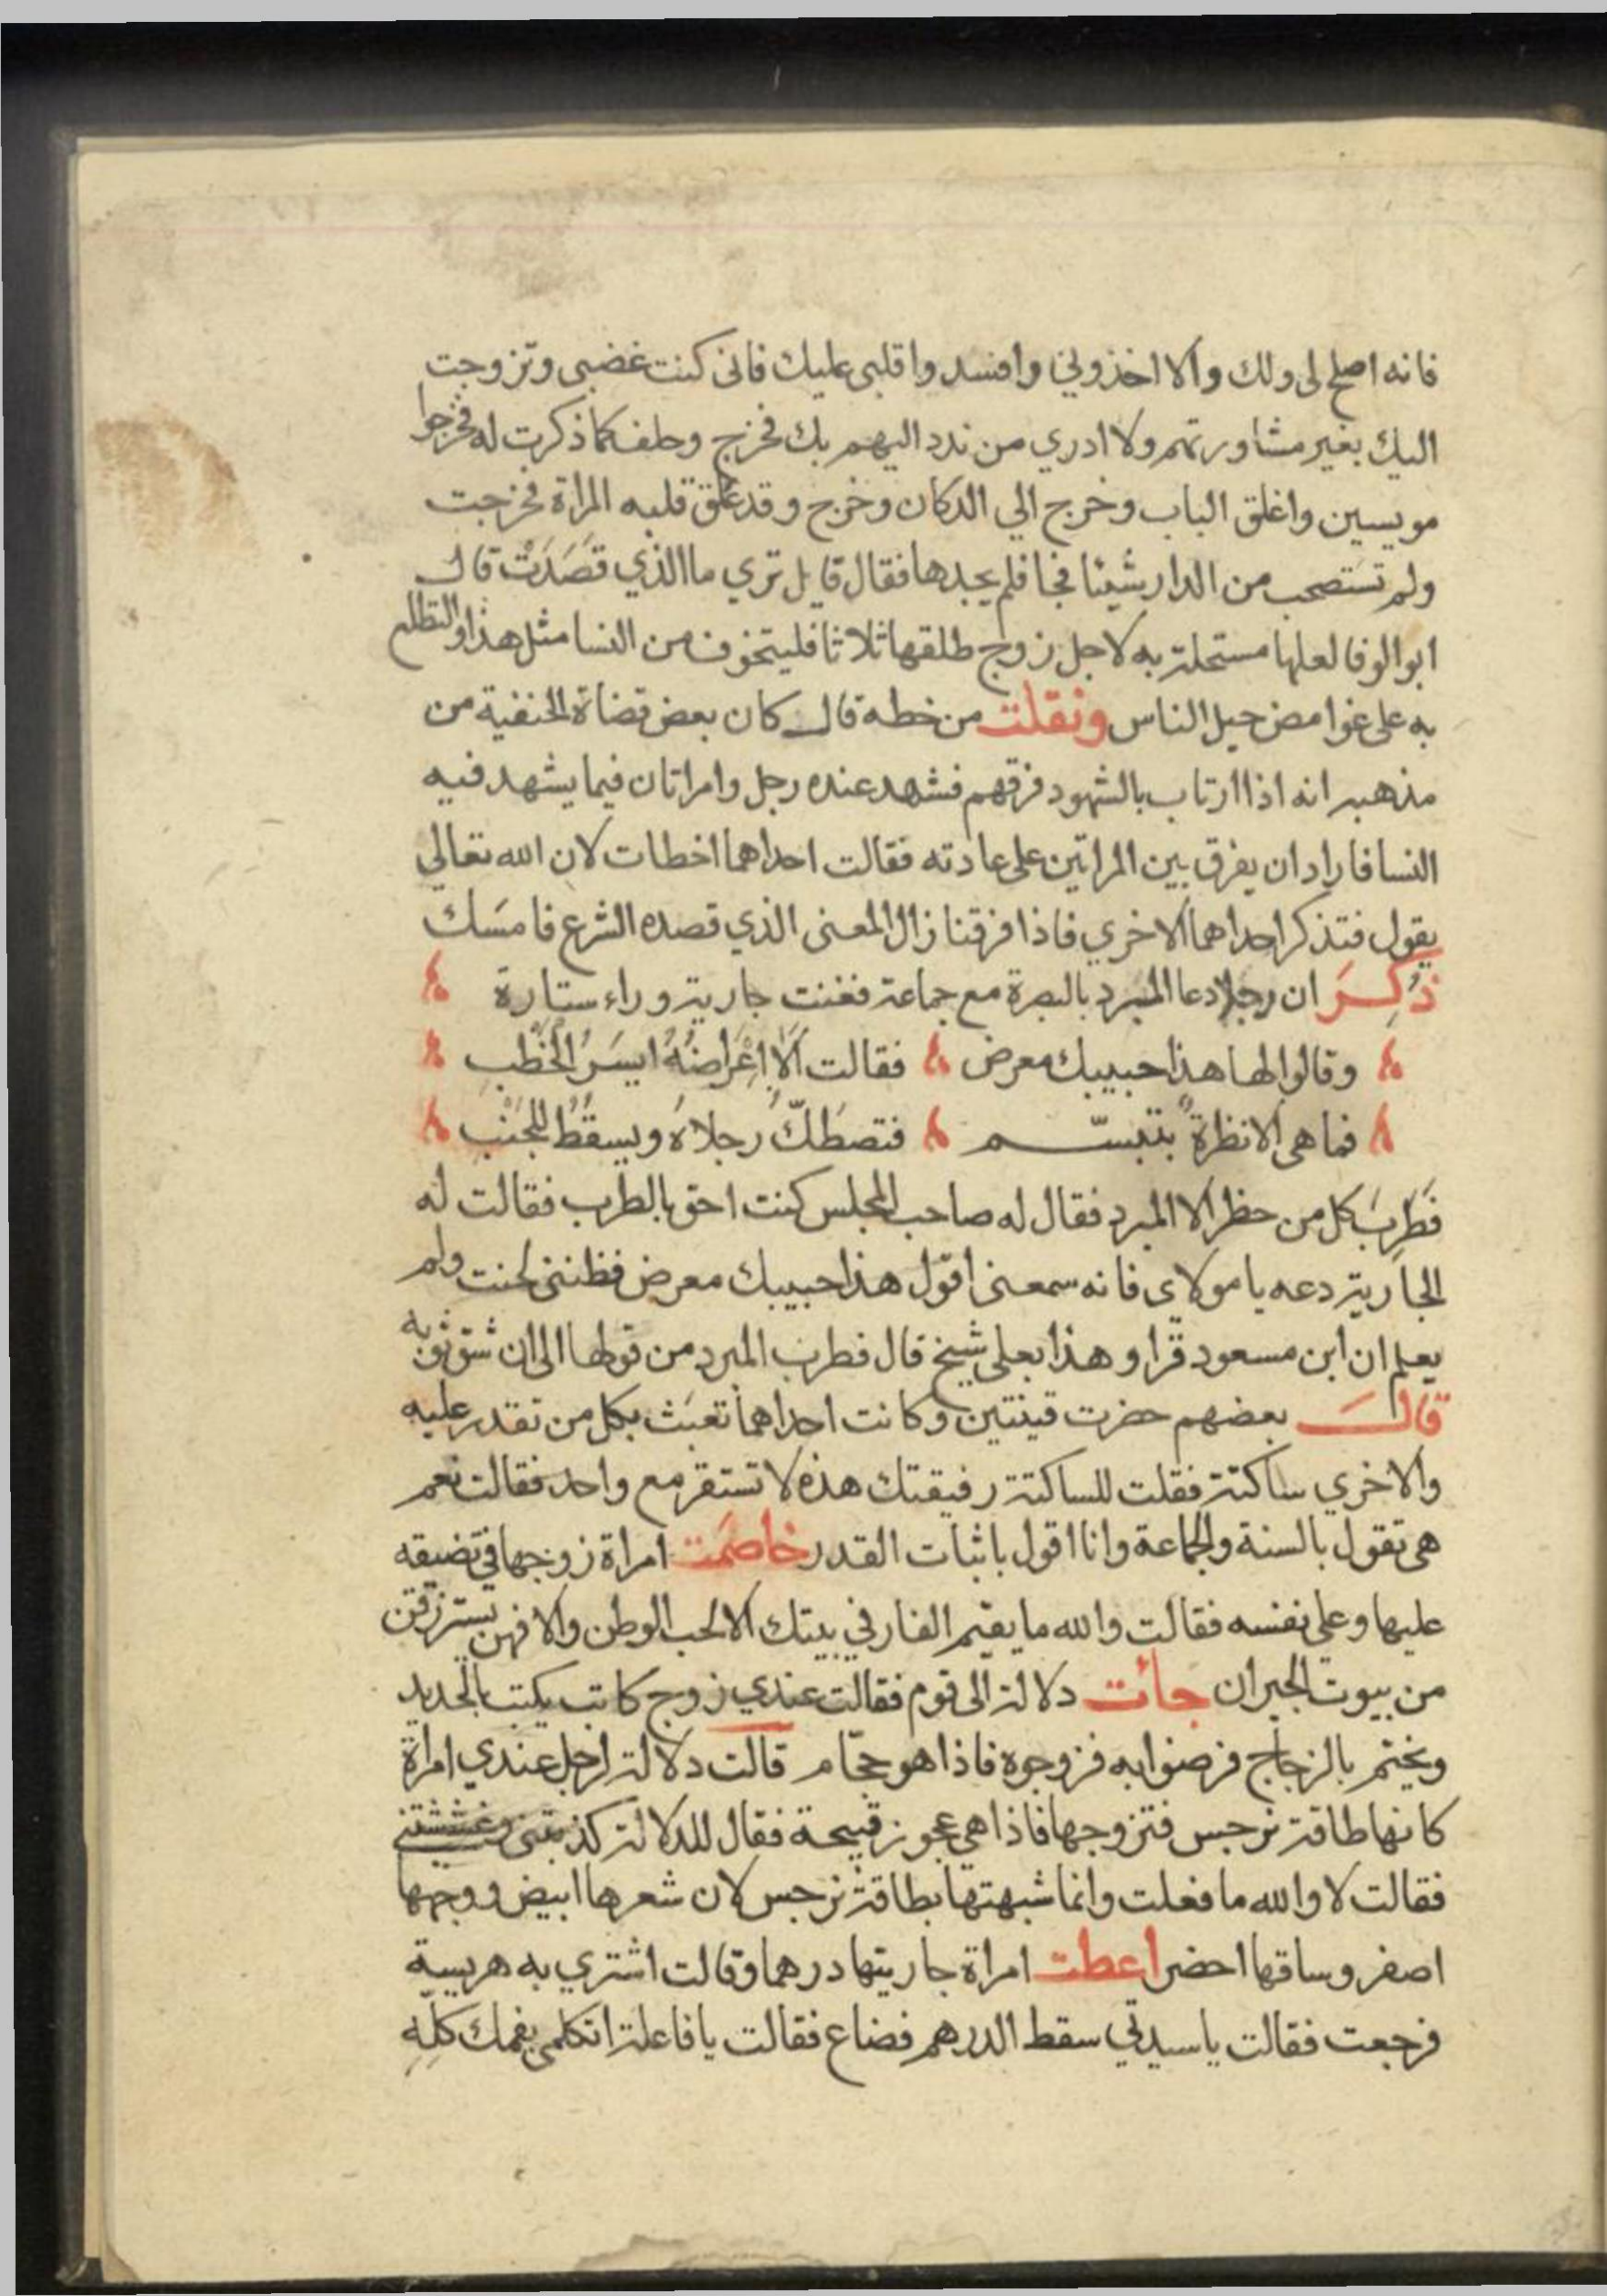 فانه اصلح لى ولك والا اخذوني وافسدوا قلبى عليك فانى كنت غضبى وتزوجت
اليك بغير مشاورتهم ولا ادري من ندد اليهم بك فخرج وحلف كما ذكرت له فخرجوا
مويسين واغلق الباب وخرج الي الدكان وخرج وقد علق قلبه المراة فخرجت
ولم تستصحب من الدار شيئا فجا فلم يجدها فقال قايل تري ما الذي قَصَدَتْ قال
ابو الوفا لعلها مستحلة به لاجل زوج طلقها ثلاثا فليتخوف من النسا مثل هذا والتطلع
به على غوامض حيل الناس ونقلت من خطه قال كان بعض قضاة الحنفية من
مذهبه انه اذا ارتاب بالشهود فرقهم فشهد عنده رجل وامراتان فيما يشهد فيه
النسا فاراد ان يفرق بين المراتين على عادته فقالت احداهما اخطات لان الله تعالي
يقول فتذكر احداهما الاخري فاذا فرقنا زال المعنى الذي قصده الشرع فامسَك
ذُكِرَ ان رجلا دعا المبرد بالبصرة مع جماعة فغنت جارية وراء ستارة
وقالوا لها هذا حبيبك معرض فقالت اَلَا اِعْرَاضُهُ ايسَرُ الخَطْبِ
فما هى الا نظرةٌ بتبسّم فتصطَكّ رجلاهُ ويسقُطُ لِلجَنْبِ
فَطَرِبَ كل من حظر الا المبرد فقال له صاحب المجلس كنت احق بالطرب فقالت له
الجارية دعه يا مولاى فانه سمعنى اقول هذا حبيبك معرض فظننى لحنت ولم
يعلم ان ابن مسعود قرا وهذا بعلى شيخ قال فطرب المبرد من قولها الى ان شق ثوبه
قالَ بعضهم حضرت قينتين وكانت احداهما تعبَث بكل من تقدر عليه
والاخري ساكتة فقلت للساكتة رفيقتك هذه لا تستقر مع واحد فقالت نعم
هى تقول بالسنة والجماعة وانا اقول باثبات القدر خاصَمَت امراة زوجها فى تضيقه
عليها وعلى نفسه فقالت والله ما يقيم الفار في بيتك الا لحب الوطن والا فهن يسترزقن
من بيوت الجيران جأت دلالة الى قوم فقالت عندي زوج كاتب يكتب بالحديد
ويختم بالزجاج فرضوا به فزوجوه فاذا هو حجّام قالت دلالة لرجل عندي امراة
كانها طاقة نرجس فتزوجها فاذا هى عجوز قبيحة فقال للدلالة كذبتنى وغششتنى
فقالت لا والله ما فعلت وانما شبهتها بطاقة نرجس لان شعرها ابيض ووجهها
اصفر وساقها اخضر اعطت امراة جاريتها درهما وقالت اشتري به هريسة
فرجعت فقالت يا سيدتي سقط الدرهم فضاع فقالت يا فاعلة اتكلمى بفمك كلِّهِ